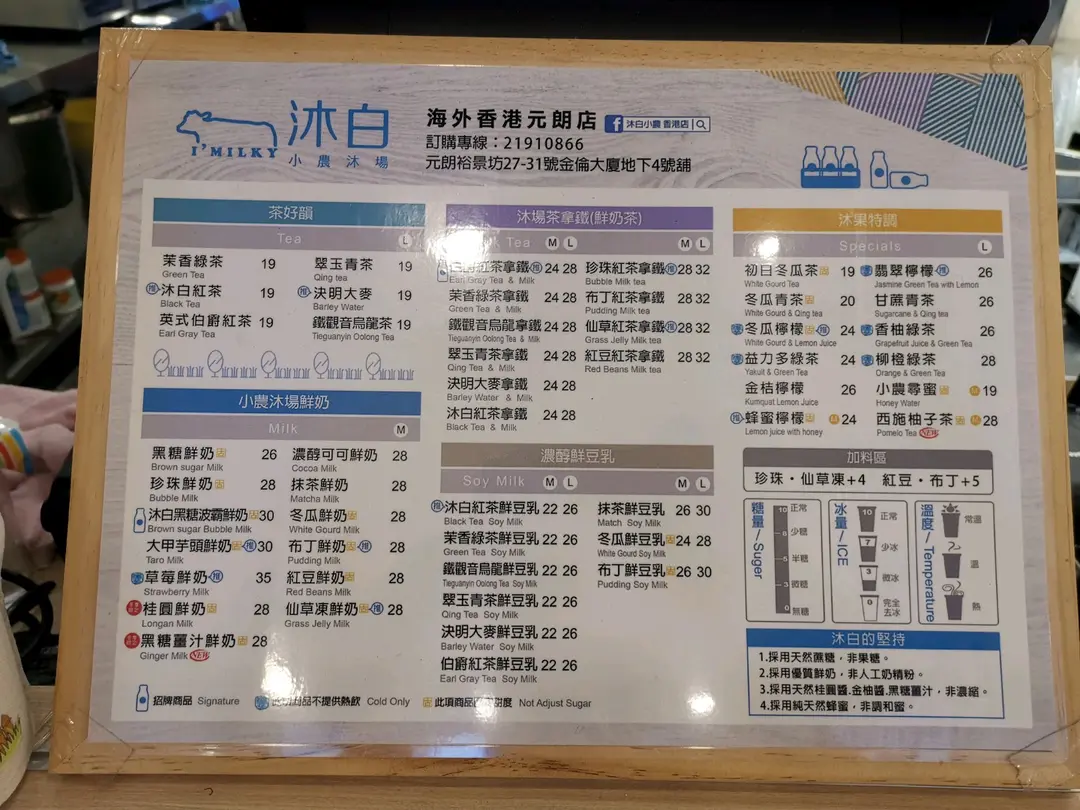 I'MILKY
沐白
小農沐場
海外香港元朗店
沐白小農 香港店
訂購專線：21910866
元朗裕景坊27-31號金倫大廈地下4號舖
茶好韻
Tea L
茉香綠茶 19
Green Tea
翠玉青茶 19
Qing tea
推 沐白紅茶 19
Black Tea
推 決明大麥 19
Barley Water
英式伯爵紅茶 19
Earl Gray Tea
鐵觀音烏龍茶 19
Tieguanyin Oolong Tea
小農沐場鮮奶
Milk M
黑糖鮮奶 26
Brown sugar Milk
濃醇可可鮮奶 28
Cocoa Milk
珍珠鮮奶固 28
Bubble Milk
抹茶鮮奶 28
Matcha Milk
沐白黑糖波霸鮮奶固30
Brown sugar Bubble Milk
冬瓜鮮奶固 28
White Gourd Milk
大甲芋頭鮮奶固推30
Taro Milk
布丁鮮奶固推 28
Pudding Milk
草莓鮮奶推 35
Strawberry Milk
紅豆鮮奶固 28
Red Beans Milk
桂圓鮮奶固 28
Longan Milk
仙草凍鮮奶固推 28
Grass Jelly Milk
黑糖薑汁鮮奶固 28
Ginger Milk NEW
沐場茶拿鐵(鮮奶茶)
Tea M L M L
紅茶拿鐵推 24 28
Earl Gray Tea & Milk
珍珠紅茶拿鐵推28 32
Bubble Milk tea
茉香綠茶拿鐵 24 28
Green Tea & Milk
布丁紅茶拿鐵 28 32
Pudding Milk tea
鐵觀音烏龍拿鐵 24 28
Tieguanyin Oolong Tea & Milk
仙草紅茶拿鐵推28 32
Grass Jelly Milk tea
翠玉青茶拿鐵 24 28
Qing Tea & Milk
紅豆紅茶拿鐵 28 32
Red Beans Milk tea
決明大麥拿鐵 24 28
Barley Water & Milk
沐白紅茶拿鐵 24 28
Black Tea & Milk
濃醇鮮豆乳
Soy Milk M L M L
推 沐白紅茶鮮豆乳 22 26
Black Tea Soy Milk
抹茶鮮豆乳 26 30
Match Soy Milk
茉香綠茶鮮豆乳 22 26
Green Tea Soy Milk
冬瓜鮮豆乳固24 28
White Gourd Soy Milk
鐵觀音烏龍鮮豆乳 22 26
Tieguanyin Oolong Tea Soy Milk
布丁鮮豆乳固26 30
Pudding Soy Milk
翠玉青茶鮮豆乳 22 26
Qing Tea Soy Milk
決明大麥鮮豆乳 22 26
Barley Water Soy Milk
伯爵紅茶鮮豆乳 22 26
Earl Gray Tea Soy Milk
沐果特調
Specials L
初白冬瓜茶固 19
White Gourd Tea
翡翠檸檬推 26
Jasmine Green Tea with Lemon
冬瓜青茶固 20
White Gourd & Qing tea
甘蔗青茶 26
Sugarcane & Qing tea
冬瓜檸檬固推 24
White Gourd & Lemon Juice
香柚綠茶 26
Grapefruit Juice & Green Tea
益力多綠茶 24
Yakult & Green Tea
柳橙綠茶 28
Orange & Green Tea
金桔檸檬 26
Kumquat Lemon Juice
小農尋蜜固 M 19
Honey Water
推 蜂蜜檸檬固 M 24
Lemon juice with honey
西施柚子茶固 M 28
Pomelo Tea NEW
加料區
珍珠・仙草凍+4 紅豆・布丁+5
糖量/Sugar
10 正常
8 少糖
5 半糖
3 微糖
0 無糖
冰量/ICE
10 正常
7 少冰
3 微冰
0 完全去冰
溫度/Temperature
常溫
溫
熱
沐白的堅持
1.採用天然蔗糖，非果糖。
2.採用優質鮮奶，非人工奶精粉。
3.採用天然桂圓醬.金柚醬.黑糖薑汁，非濃縮。
4.採用純天然蜂蜜，非調和蜜。
招牌商品 Signature
商品不提供熱飲 Cold Only
固 此項商品 甜度 Not Adjust Sugar